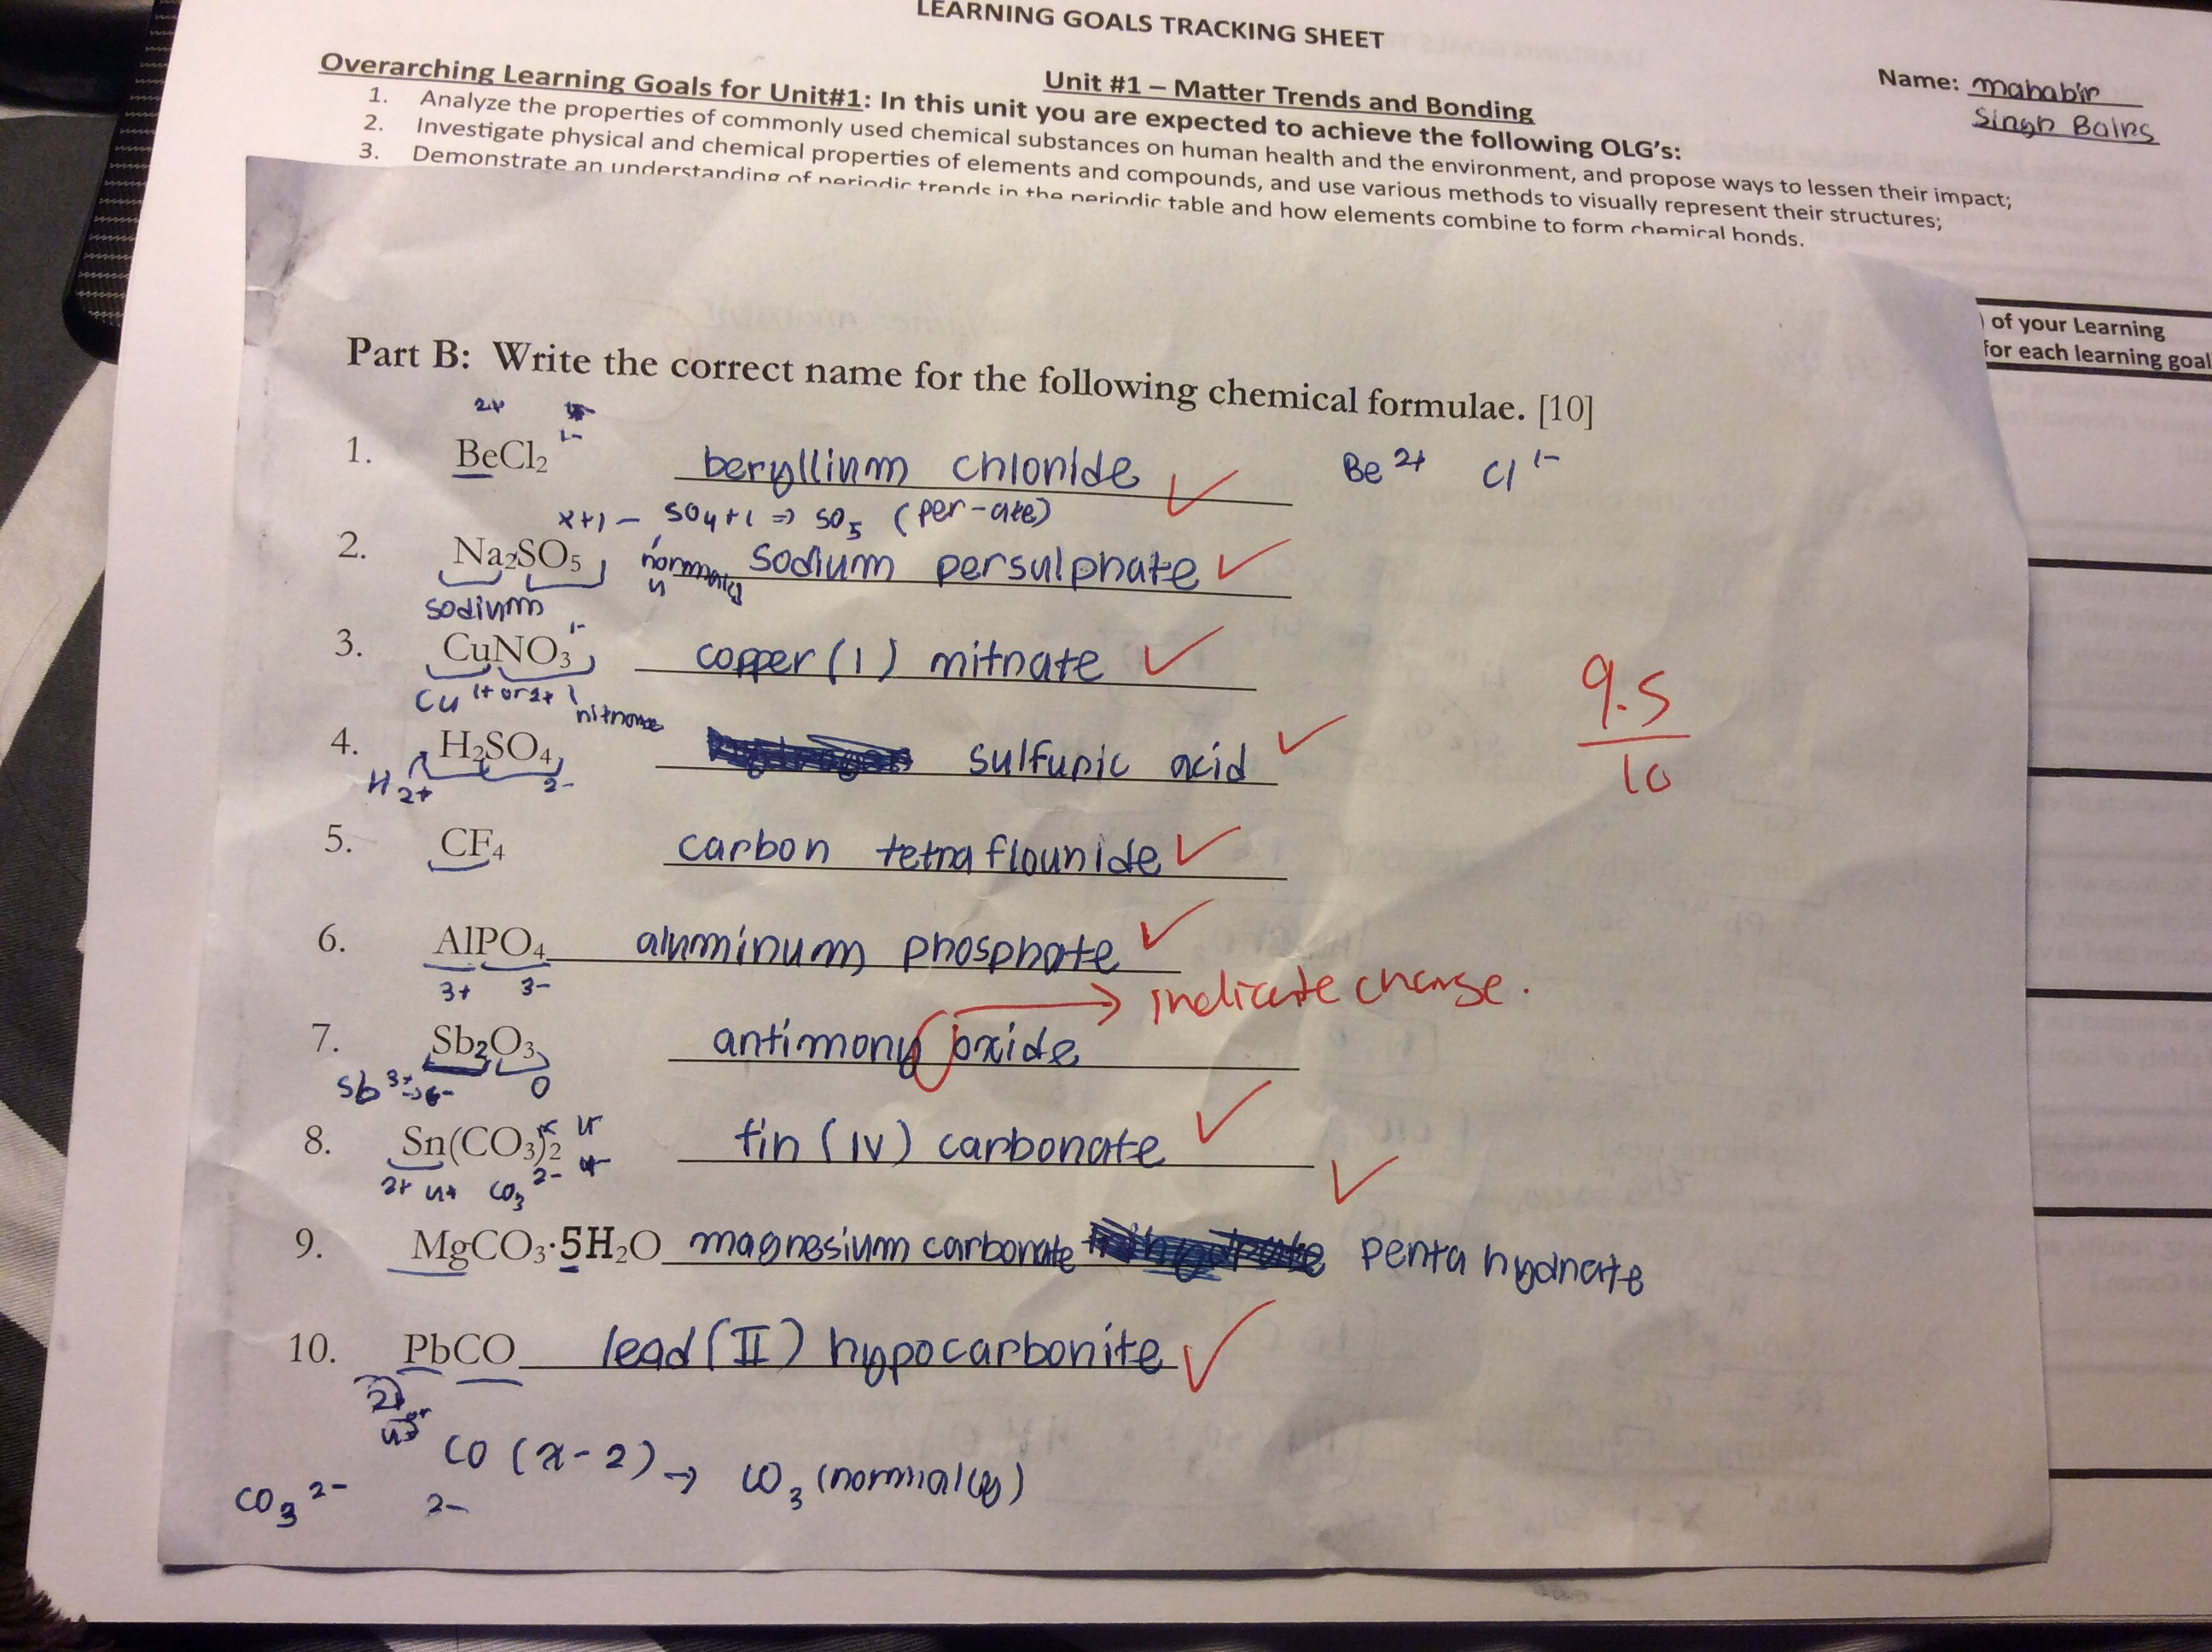 LEARNING GOALS TRACKING SHEET
Unit #1 – Matter Trends and Bonding
Name: mahabir
Singh Bains
Overarching Learning Goals for Unit#1: In this unit you are expected to achieve the following OLG's:
1. Analyze the properties of commonly used chemical substances on human health and the environment, and propose ways to lessen their impact;
2. Investigate physical and chemical properties of elements and compounds, and use various methods to visually represent their structures;
3. Demonstrate an understanding of periodic trends in the periodic table and how elements combine to form chemical bonds.
) of your Learning
for each learning goal
Part B: Write the correct name for the following chemical formulae. [10]
2+
1-
1. BeCl₂ beryllium chloride ✓ Be²⁺ Cl¹⁻
x+1 – SO₄+1 ⇒ SO₅ (per-ate)
2. Na₂SO₅ normally sodium persulphate ✓
sodium
1-
3. CuNO₃ copper (I) nitrate ✓
Cu 1+ or 2+ nitrate
9.5
10
4. H₂SO₄ sulfuric acid ✓
H 2+ 2-
5. CF₄ carbon tetraflouride ✓
6. AlPO₄ aluminum phosphate ✓
3+ 3-
→ indicate charge.
7. Sb₂O₃ antimony oxide
Sb 3+ O
8. Sn(CO₃)₂ tin (IV) carbonate ✓
2+ 4+ CO₃ 2-
9. MgCO₃·5H₂O magnesium carbonate penta hydrate ✓
10. PbCO lead (II) hypocarbonite ✓
2+ or
4+
CO (x-2) → CO₃ (normally)
CO₃²⁻ 2-